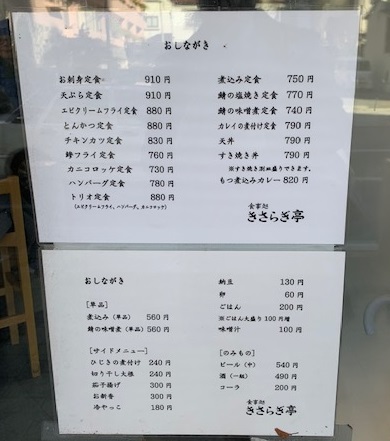 おしながき
お刺身定食 910円
天ぷら定食 910円
エビクリームフライ定食 880円
とんかつ定食 880円
チキンカツ定食 830円
鯵フライ定食 760円
カニコロッケ定食 730円
ハンバーグ定食 780円
トリオ定食 880円
(エビクリームフライ、ハンバーグ、カニコロッケ)
煮込み定食 750円
鯖の塩焼き定食 770円
鯖の味噌煮定食 740円
カレイの煮付け定食 790円
天丼 790円
すき焼き丼 790円
※すき焼き別皿盛りできます。
もつ煮込みカレー 820円
食事処
きさらぎ亭
おしながき
[単品]
煮込み(単品) 560円
鯖の味噌煮(単品) 560円
[サイドメニュー]
ひじきの煮付け 240円
切り干し大根 240円
茄子揚げ 300円
お新香 300円
冷やっこ 180円
納豆 130円
卵 60円
ごはん 200円
※ごはん大盛り100円増
味噌汁 100円
[のみもの]
ビール(中) 540円
酒(一級) 490円
コーラ 200円
食事処
きさらぎ亭